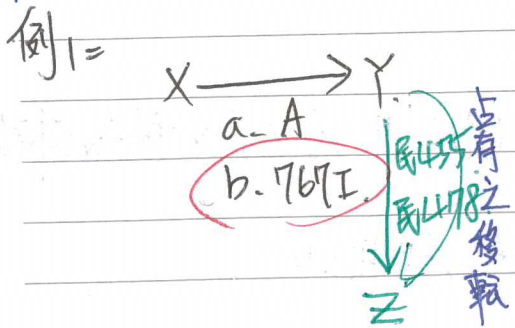 例1=
X → Y.
a. A
b. 767I.
民455
民478
Z
占有之移転